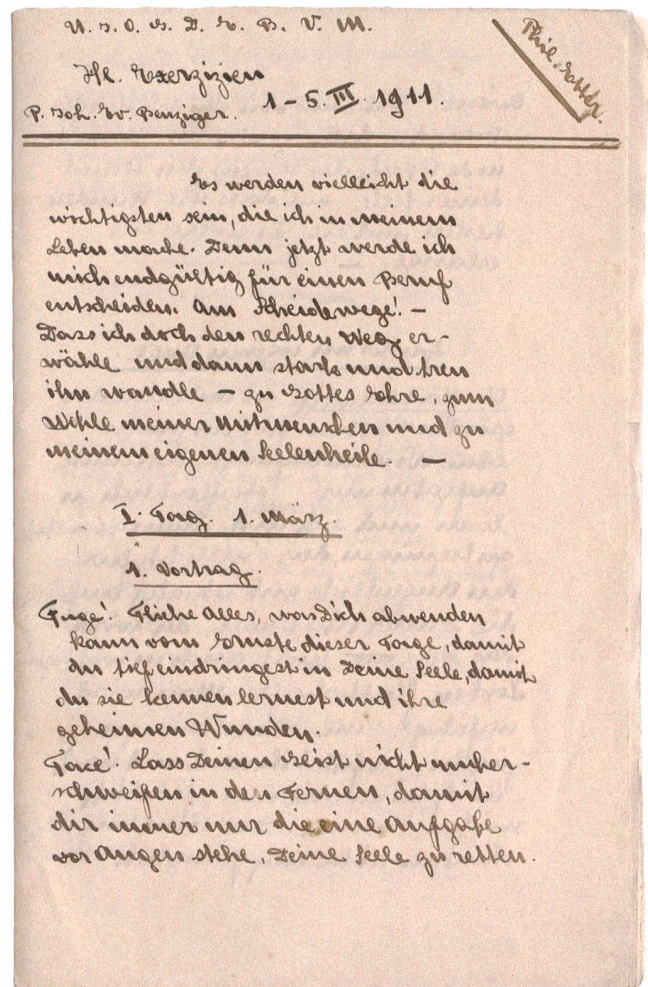 U. I. O. G. D. E. B. V. M.
Phil. Etter.
Hl. Exerzizien
P. Joh. Ev. Benziger. 1–5. III. 1911.
Es werden vielleicht die
wichtigsten sein, die ich in meinem
Leben mache. Denn jetzt werde ich
mich endgültig für einen Beruf
entscheiden. Am Scheidewege! –
Dass ich doch den rechten Weg er-
wähle und dann stark und treu
ihn wandle – zu Gottes Ehre, zum
Wohle meiner Mitmenschen und zu
meinem eigenen Seelenheile. –
I. Tag. 1. März.
1. Vortrag.
Fuge! Fliehe Alles, was Dich abwenden
kann vom Ernste dieser Tage, damit
du tief eindringest in Deine Seele, damit
du sie kennen lernest und ihre
geheimen Wunden.
Tace! Lass Deinen Geist nicht umher-
schweifen in den Fernen, damit
dir immer nur die eine Aufgabe
vor Augen stehe, Deine Seele zu retten.